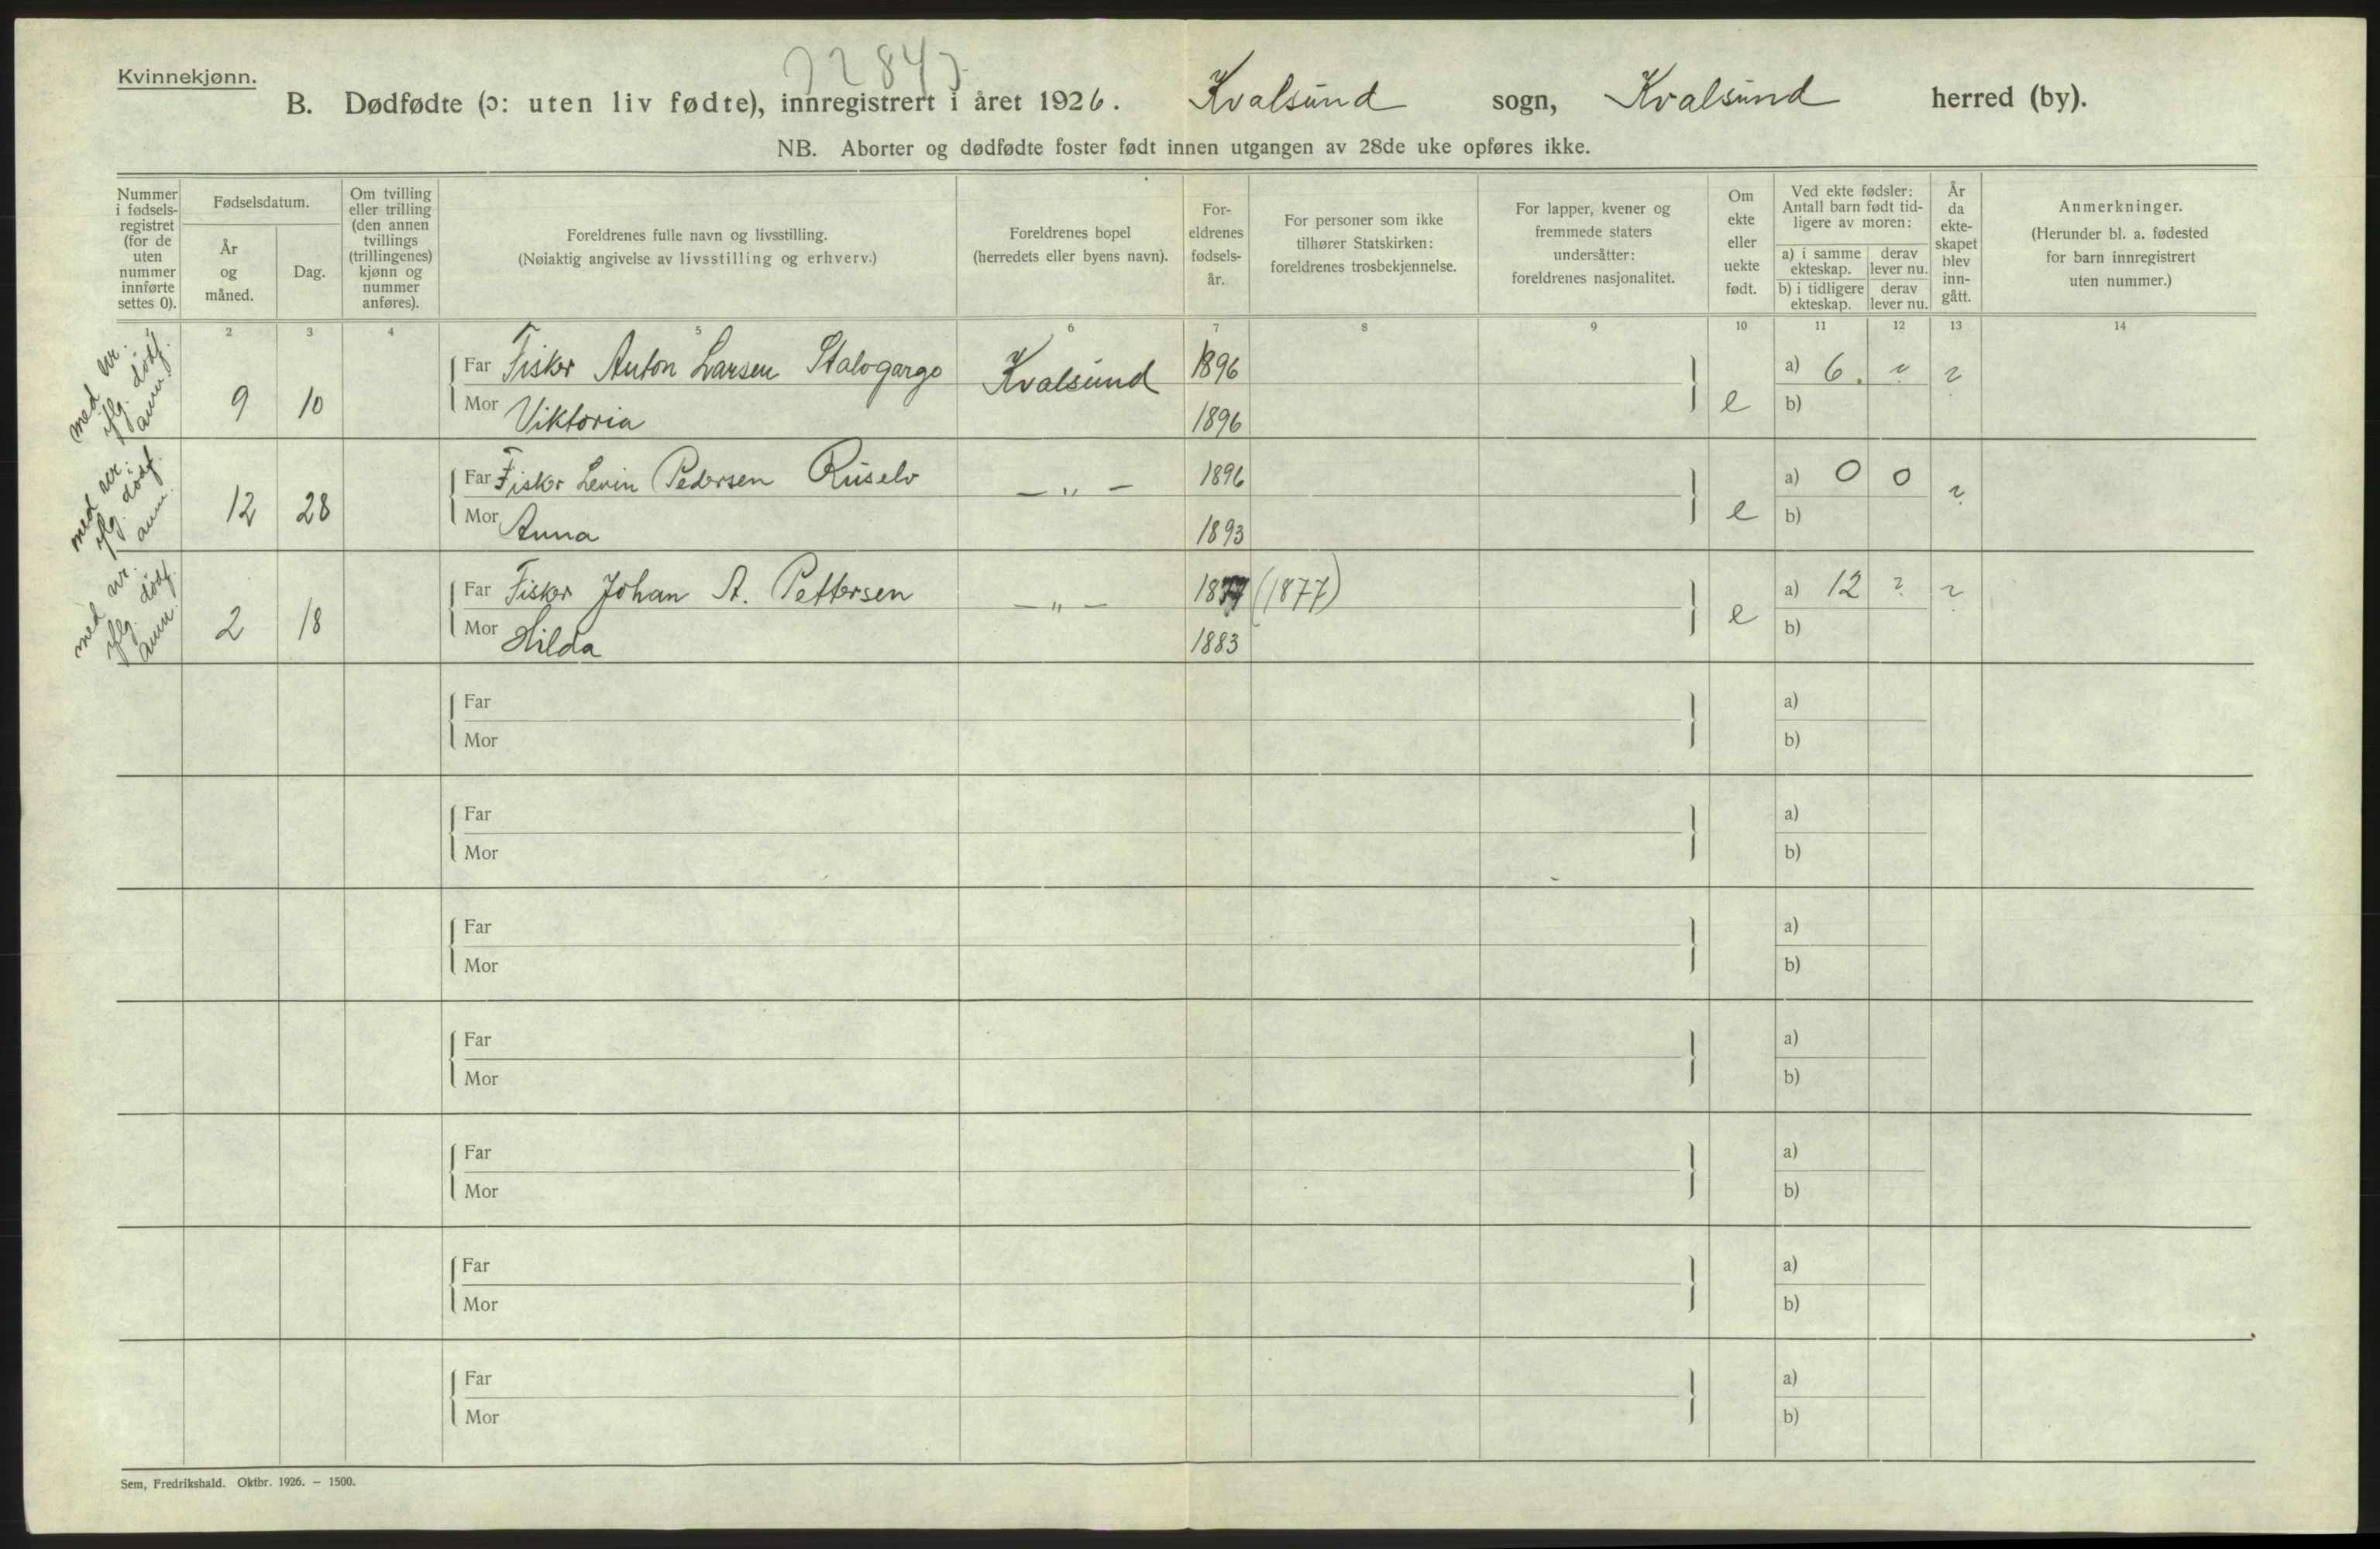 Kvinnekjønn.
2284
B. Dødfødte (ɔ: uten liv fødte), innregistrert i året 1926. Kvalsund sogn, Kvalsund herred (by).
NB. Aborter og dødfødte foster født innen utgangen av 28de uke opføres ikke.
Nummer i fødsels-registret (for de uten nummer innførte settes 0).
Fødselsdatum.
År og måned.
Dag.
Om tvilling eller trilling (den annen tvillings (trillingenes) kjønn og nummer anføres).
Foreldrenes fulle navn og livsstilling.
(Nøiaktig angivelse av livsstilling og erhverv.)
Foreldrenes bopel
(herredets eller byens navn).
For-eldrenes fødsels-år.
For personer som ikke tilhører Statskirken: foreldrenes trosbekjennelse.
For lapper, kvener og fremmede staters undersåtter: foreldrenes nasjonalitet.
Om ekte eller uekte født.
Ved ekte fødsler: Antall barn født tid-ligere av moren:
a) i samme ekteskap. derav lever nu.
b) i tidligere ekteskap. derav lever nu.
År da ekte-skapet blev inn-gått.
Anmerkninger.
(Herunder bl. a. fødested for barn innregistrert uten nummer.)
1 2 3 4 5 6 7 8 9 10 11 12 13 14
med nr. iflg. dødf. anm.
9 10 Far Fisker Anton Larsen Stalogargo Kvalsund 1896 e a) 6. ? ?
Mor Viktoria 1896 b)
med nr. iflg. dødf. anm.
12 28 Far Fisker Levin Pedersen Ruselv — " — 1896 e a) 0 0 ?
Mor Anna 1893 b)
med nr. iflg. dødf. anm.
2 18 Far Fisker Johan A. Pettersen — " — 1877 (1877) e a) 12 ? ?
Mor Hilda 1883 b)
Far a)
Mor b)
Far a)
Mor b)
Far a)
Mor b)
Far a)
Mor b)
Far a)
Mor b)
Far a)
Mor b)
Far a)
Mor b)
Sem, Fredrikshald. Oktbr. 1926. — 1500.